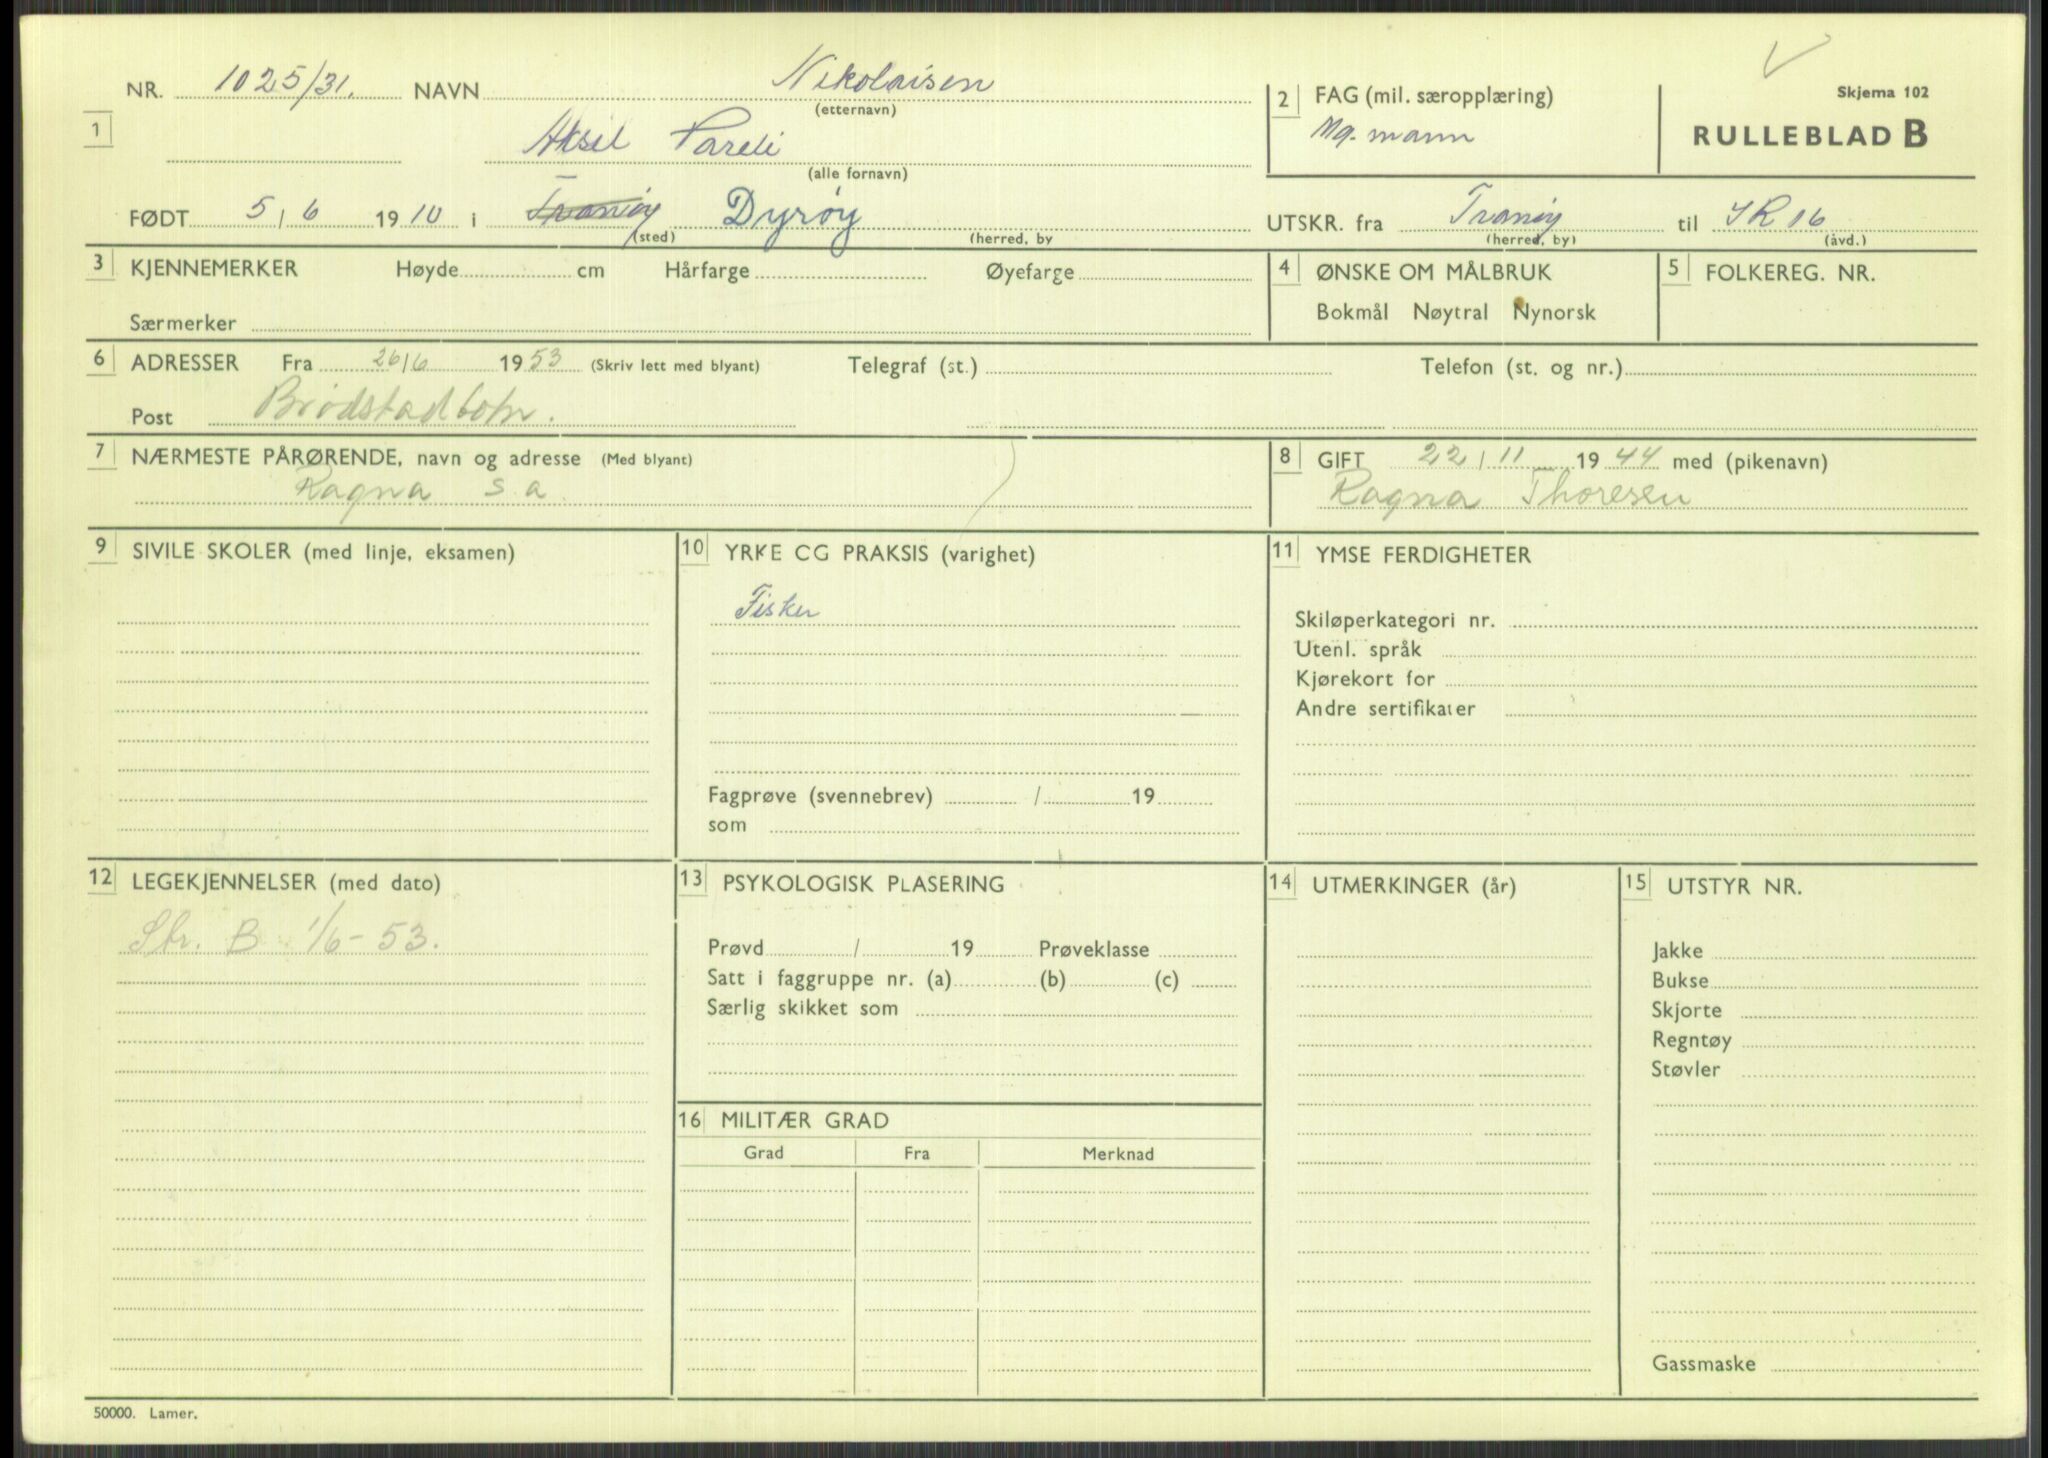 Skjema 102
RULLEBLAD B
1
NR. 1025/31. NAVN Nikolaisen
(etternavn)
Aksel Pareli
(alle fornavn)
FØDT 5/6 1910 i Tranøy Dyrøy
(sted) (herred, by
2 FAG (mil. særopplæring)
Mg. mann
UTSKR. fra Tranøy til IR 16
(herred, by) (avd.)
3 KJENNEMERKER Høyde cm Hårfarge Øyefarge
Særmerker
4 ØNSKE OM MÅLBRUK
Bokmål Nøytral Nynorsk
5 FOLKEREG. NR.
6 ADRESSER Fra 26/6 1953 (Skriv lett med blyant) Telegraf (st.) Telefon (st. og nr.)
Post Brødstadbotn.
7 NÆRMESTE PÅRØRENDE, navn og adresse (Med blyant)
Ragna s a
8 GIFT 22/11 1944 med (pikenavn)
Ragna Thoresen
9 SIVILE SKOLER (med linje, eksamen)
10 YRKE CG PRAKSIS (varighet)
Fisker
Fagprøve (svennebrev) / 19
som
11 YMSE FERDIGHETER
Skiløperkategori nr.
Utenl. språk
Kjørekort for
Andre sertifikater
12 LEGEKJENNELSER (med dato)
Str. B 1/6-53.
13 PSYKOLOGISK PLASERING
Prøvd / 19 Prøveklasse
Satt i faggruppe nr. (a) (b) (c)
Særlig skikket som
14 UTMERKINGER (år)
15 UTSTYR NR.
Jakke
Bukse
Skjorte
Regntøy
Støvler
Gassmaske
16 MILITÆR GRAD
Grad Fra Merknad
50000. Lamer.